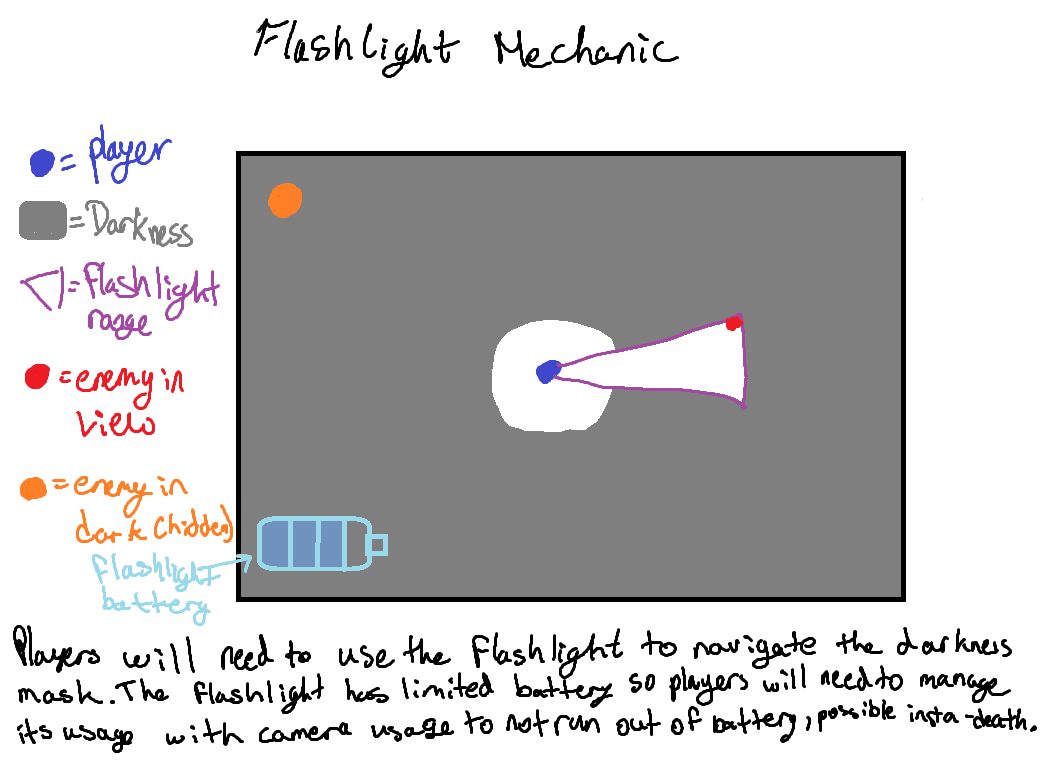 Flashlight Mechanic
= player
= Darkness
= flashlight
range
= enemy in
view
= enemy in
dark (hidden)
flashlight
battery
Players will need to use the flashlight to navigate the darkness
mask. The flashlight has limited battery so players will need to manage
its usage with camera usage to not run out of battery, possible insta-death.